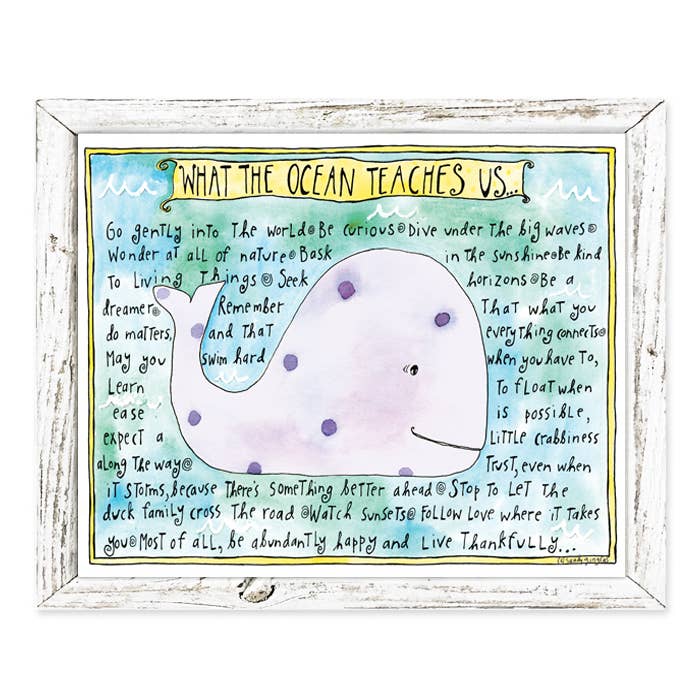 WHAT THE OCEAN TEACHES US...
Go gently into The world@Be curious@Dive under The big waves@
Wonder at all of nature@Bask in the sunshine@Be kind
To Living Things@Seek horizons@Be a
dreamer@ Remember That what you
do matters, and that everything connects@
May you swim hard when you have to,
Learn To float when
ease is possible,
expect a Little crabbiness
along The way@ Trust, even when
it storms, because There's something better ahead@Stop to Let The
duck family cross The road@Watch sunsets@Follow Love where it takes
you@Most of all, be abundantly happy and Live Thankfully...